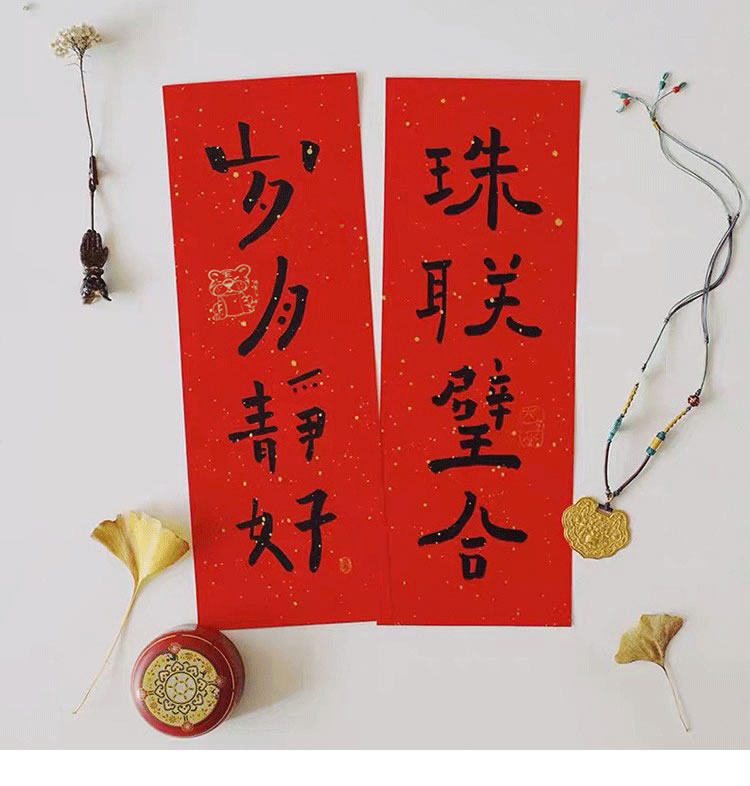 珠联璧合
岁月静好